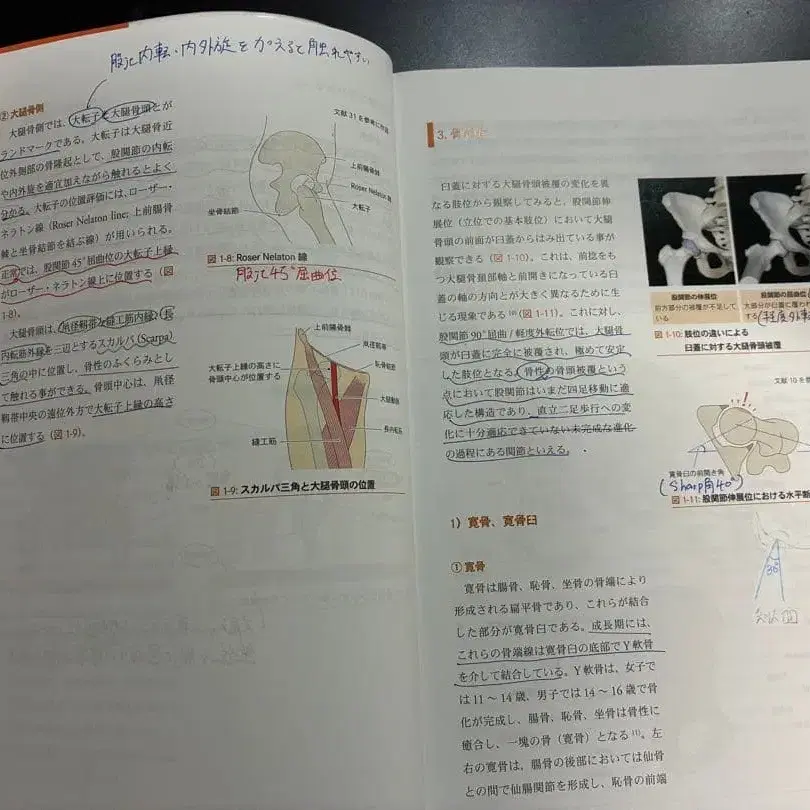 股に内転・内外旋を加えると触れやすい
② 大腿骨側
大腿骨側では、大転子と大腿骨頭とが
ランドマークである。大転子は大腿骨近
位外側部の骨隆起として、股関節の内転
や内外旋を適宜加えながら触れるとよく
分かる。大転子の位置評価には、ローザー・
ネラトン線 (Roser Nelaton line; 上前腸骨
棘と坐骨結節を結ぶ線) が用いられる。
正常では、股関節 45°屈曲位の大転子上縁
がローザー・ネラトン線上に位置する (図
1-8)。
大腿骨頭は、鼠径靱帯と縫工筋内縁、長
内転筋外縁を三辺とするスカルパ (Scarpa)
三角の中に位置し、骨性のふくらみとし
て触れる事ができる。骨頭中心は、鼠径
靱帯中央の遠位外方で大転子上縁の高さ
に位置する (図 1-9)。
文献 31 を参考に作成
上前腸骨棘
Roser Nelaton 線
大転子
坐骨結節
図 1-8: Roser Nelaton 線
股に45°屈曲位
上前腸骨棘
鼠径靱帯
恥骨結節
大転子上縁の高さに
骨頭中心が位置する
大腿動脈
長内転筋
縫工筋
図 1-9: スカルパ三角と大腿骨頭の位置
3.
臼蓋に対する大腿骨頭被覆の変化を異
なる肢位から観察してみると、股関節伸
展位 (立位での基本肢位) において大腿
骨頭の前面が臼蓋からはみ出ている事が
観察できる (図 1-10)。これは、前捻をも
つ大腿骨頚部軸と前開きになっている臼
蓋の軸の方向とが大きく異なるために生
じる現象である (図 1-11)。これに対し、
股関節 90°屈曲 / 軽度外転位では、大腿骨
頭が臼蓋に完全に被覆され、極めて安定
した肢位となる。骨性の骨頭被覆という
点において股関節はいまだ四足移動に適
応した構造であり、直立二足歩行への変
化に十分適応できていない未完成な進化
の過程にある関節といえる。
1) 寛骨、寛骨臼
① 寛骨
寛骨は腸骨、恥骨、坐骨の骨端により
形成される扁平骨であり、これらが結合
した部分が寛骨臼である。成長期には、
これらの骨端線は寛骨臼の底部で Y 軟骨
を介して結合している。Y 軟骨は、女子で
は 11 〜 14 歳、男子では 14 〜 16 歳で骨
化が完成し、腸骨、恥骨、坐骨は骨性に
癒合し、一塊の骨 (寛骨) となる 11)。左
右の寛骨は、腸骨の後部においては仙骨
との間で仙腸関節を形成し、恥骨の前端
股関節の伸展位
前方部分の被覆が不足して
いる
股関節の屈曲位
大部分が臼蓋に覆われ
(軽度外転
図 1-10: 肢位の違いによる
臼蓋に対する大腿骨頭被覆
文献 10 を
寛骨臼の前開き角
(Sharp角40°)
図 1-11: 股関節伸展位における水平断